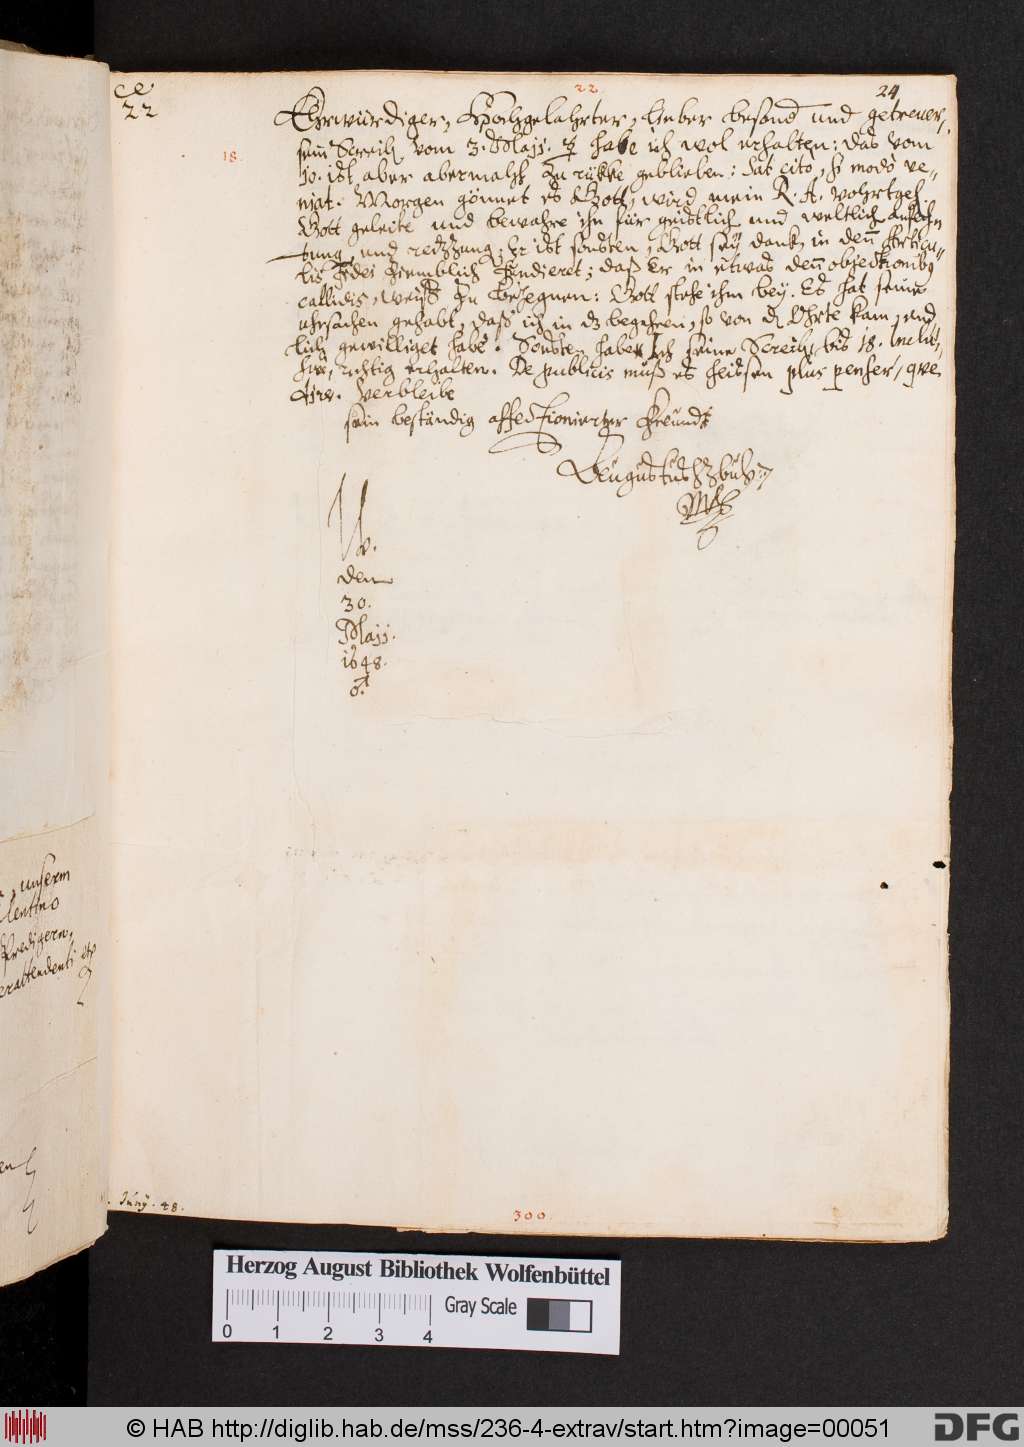 ce
22
22.
24
18.
Ehrwürdiger, Hochgelahrter, lieber besond und getreuer,
sein Schreib vom 3. Maji. habe ich wol erhalten: das vom
10. ist aber abermalß zu rükke geblieben: Sat cito, si modò ve-
niat. Morgen gönnet es Gott, wird mein R. A.
Gott geleite und bewahre ihn für geistlich und weltlich anfech-
tung, und reitzung; Er ist sonsten, Gott sey dank, in den Articu-
lis fidei ziemblich fundieret; daß Er in etwas den objectionibus
callidis, weiß zu begegnen: Gott stehe ihm bey. Es hat seine
uhrsachen gehabt, daß ich in dz begehren, so von d Ohrte kam, end-
lich gewilliget habe. Sonsten habe ich seine Schreib, bis 18. inclu-
sive, richtig erhalten. De publicis muß es heissen plus penser, que
dire. Verbleibe
sein beständig affectionierter Freundt
Augustus HZBuL
W.
den
30.
Maji.
1648.
♂.
unserm
lentino
Predigern,
erattendenti etc
en
Junij. 48.
300.
Herzog August Bibliothek Wolfenbüttel
Gray Scale
0 1 2 3 4
© HAB http://diglib.hab.de/mss/236-4-extrav/start.htm?image=00051
DFG